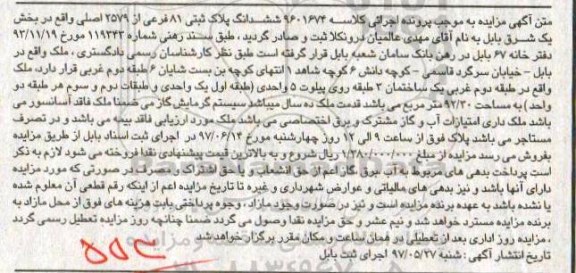 متن آگهی مزایده به موجب پرونده اجرائی کلاسه ۹۶۰۱۶۷۴ ششدانگ پلاک ثبتی ۸۱ فرعی از ۲۵۷۹ اصلی واقع در بخش
یک شرق بابل به نام آقای مهدی عالمیان درونکلا ثبت و صادر گردید، طبق سند رهنی شماره ۱۱۹۳۴۳ مورخ ۹۳/۱۱/۱۹
دفتر خانه ۶۷ بابل در رهن بانک سامان شعبه بابل قرار گرفته است طبق نظر کارشناسان رسمی دادگستری، ملک واقع در
بابل - خیابان سرگرد قاسمی - کوچه دانش ۶ کوچه شاهد ۱ انتهای کوچه بن بست شایان ۶ طبقه دوم غربی قرار دارد، ملک
واقع در طبقه دوم غربی یک ساختمان ۲ طبقه روی پیلوت ۵ واحدی (طبقه اول یک واحدی و طبقات دوم و سوم هر طبقه دو
واحد) به مساحت ۹۲/۲۰ متر مربع می باشد قدمت ملک ده سال میباشد سیستم گرمایش گاز می ضمنا ملک فاقد آسانسور می
باشد ملک داری امتیازات آب و گاز مشترک و برق اختصاصی می باشد ملک مورد ارزیابی فاقد بیمه می باشد و در تصرف
مستاجر می باشد پلاک فوق از ساعت ۹ الی ۱۲ روز چهارشنبه مورخ ۹۷/۰۶/۱۴ در اجرای ثبت اسناد بابل از طریق مزایده
بفروش می رسد مزایده از مبلغ ۱/۳۸۰/۰۰۰/۰۰۰ ریال شروع و به بالاترین قیمت پیشنهادی نقدا فروخته می شود لازم به ذکر
است پرداخت بدهی های مربوط به آب برق گاز اعم از حق انشعاب و یا حق اشتراک و مصرف در صورتی که مورد مزایده
دارای آنها باشد و نیز بدهی های مالیاتی و عوارض شهرداری و غیره تا تاریخ مزایده اعم از اینکه رقم قطعی آن معلوم شده
یا نشده باشد به عهده برنده مزایده است و نیز در صورت وجود مازاد، وجوه پرداختی بابت هزینه های فوق از محل مازاد به
برنده مزایده مسترد خواهد شد و نیم عشر و حق مزایده نقدا وصول می گردد ضمنا چنانچه روز مزایده تعطیل رسمی گردد
، مزایده روز اداری بعد از تعطیلی در همان ساعت و مکان مقرر برگزار خواهد شد
تاریخ انتشار آگهی: شنبه ۹۷/۰۵/۲۷ اجرای ثبت بابل